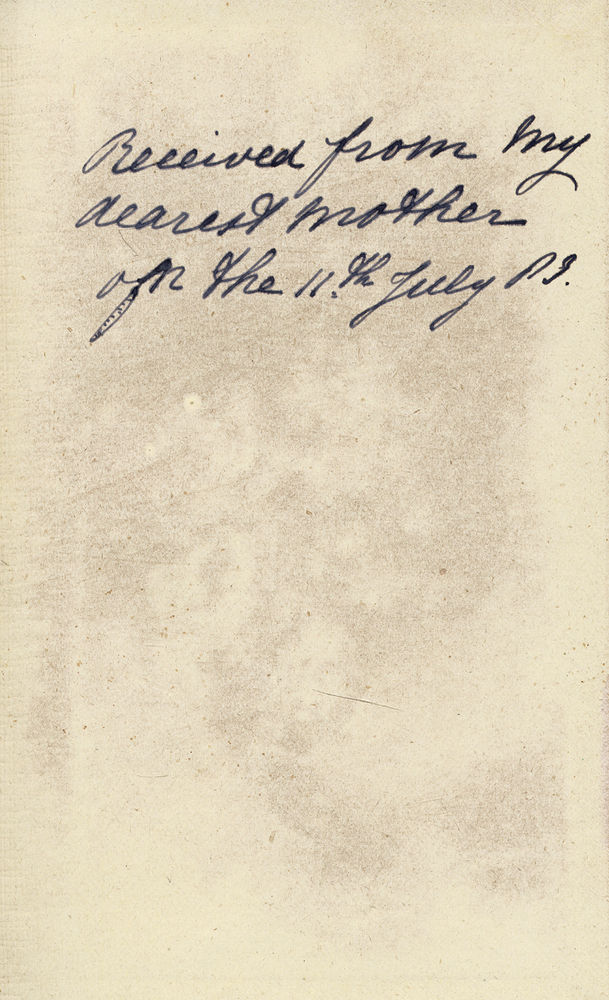 Received from my
dearest mother
on the 11.th July